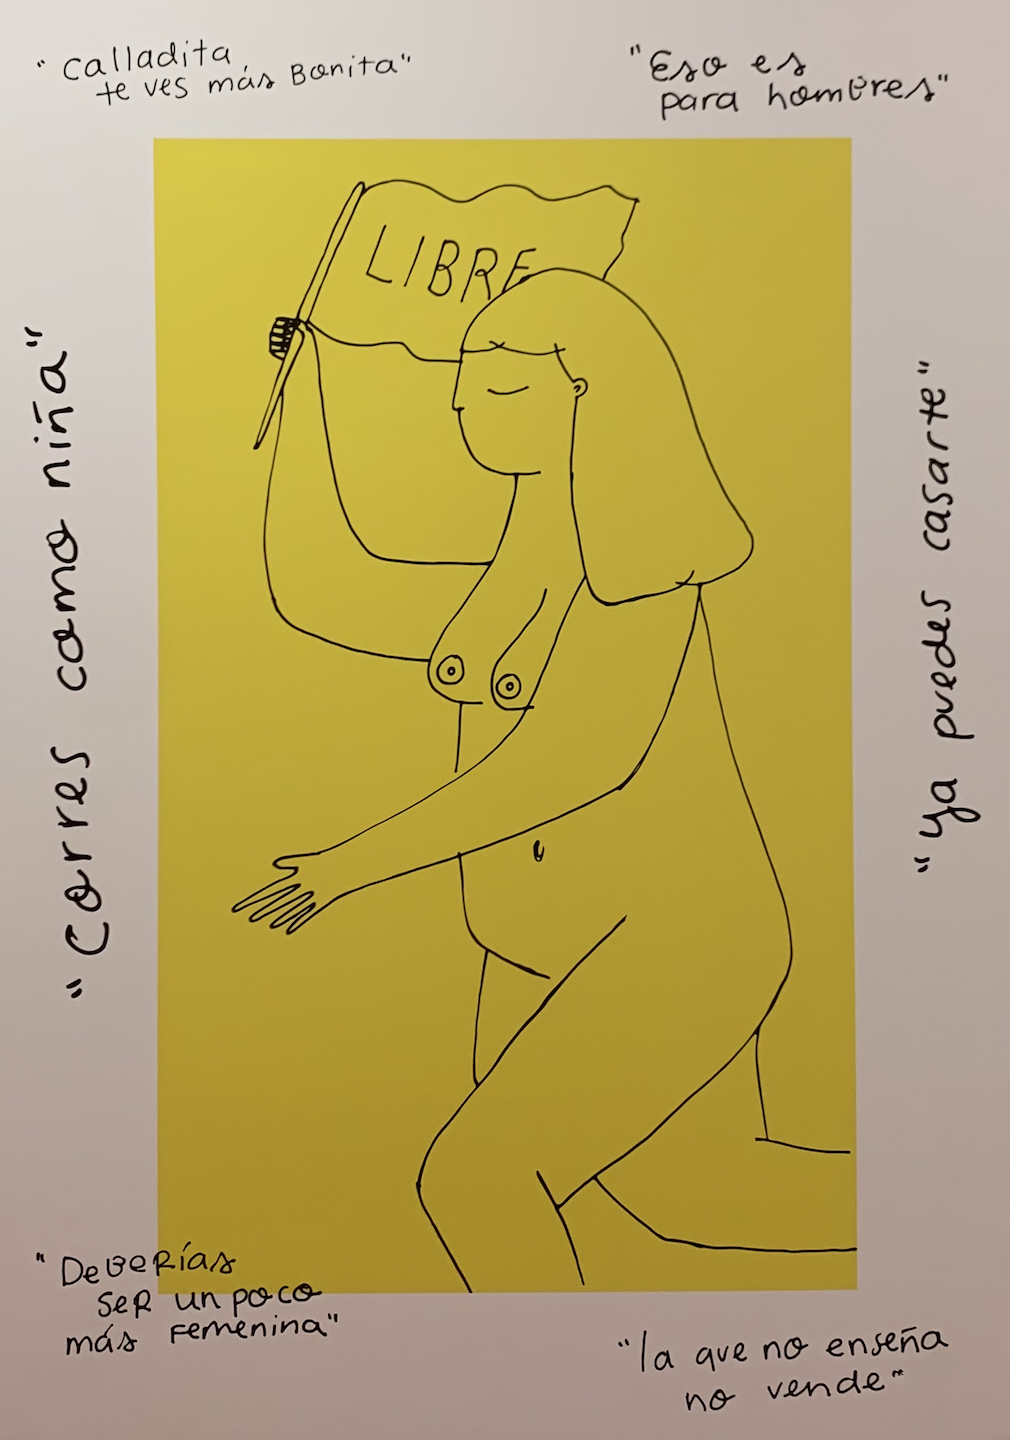 "Calladita
te ves más Bonita"
"Eso es
para hombres"
LIBRE
"Corres como niña"
"Ya puedes casarte"
"Deberías
seR un poco
más Femenina"
"la que no enseña
no vende"